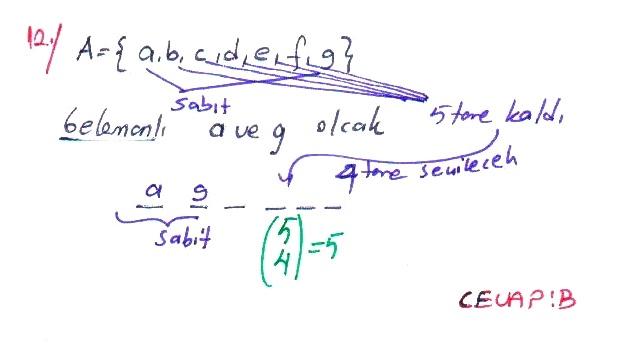 12./ A={a,b,c,d,e,f,g}
sabit
6 elemanlı a ve g olcak 5 tane kaldı
4 tane seçilecek
a g _ _ _ _
sabit
(5 4) = 5
CEVAP:B